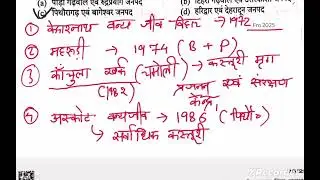 (a) पौड़ी गढ़वाल एवं रुद्रप्रयाग जनपद
(c) पिथौरागढ़ एवं बागेश्वर जनपद
(d) हरिद्वार एवं देहरादून जनपद
① केदारनाथ वन्य जीव विहार → 1972
② → 1974 (B + P)
③ काँचुला खर्क (चमोली) → कस्तूरी मृग
(1982)
प्रजनन एवं संरक्षण
केन्द्र
④ अस्कोट वन्यजीव → 1986
→ सर्वाधिक कस्तूरी